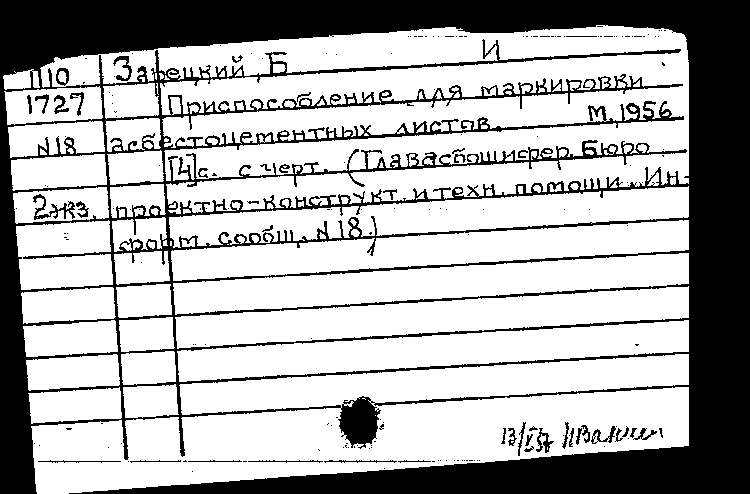 П10 Зарецкий, Б И
1727 Приспособление для маркировки
N18 асбестоцементных листов. М. 1956
[4]с. с черт. (Главасбошифер. Бюро
2экз. проектно-конструкт. и техн. помощи. Ин-
форм. сообщ. N 18.)